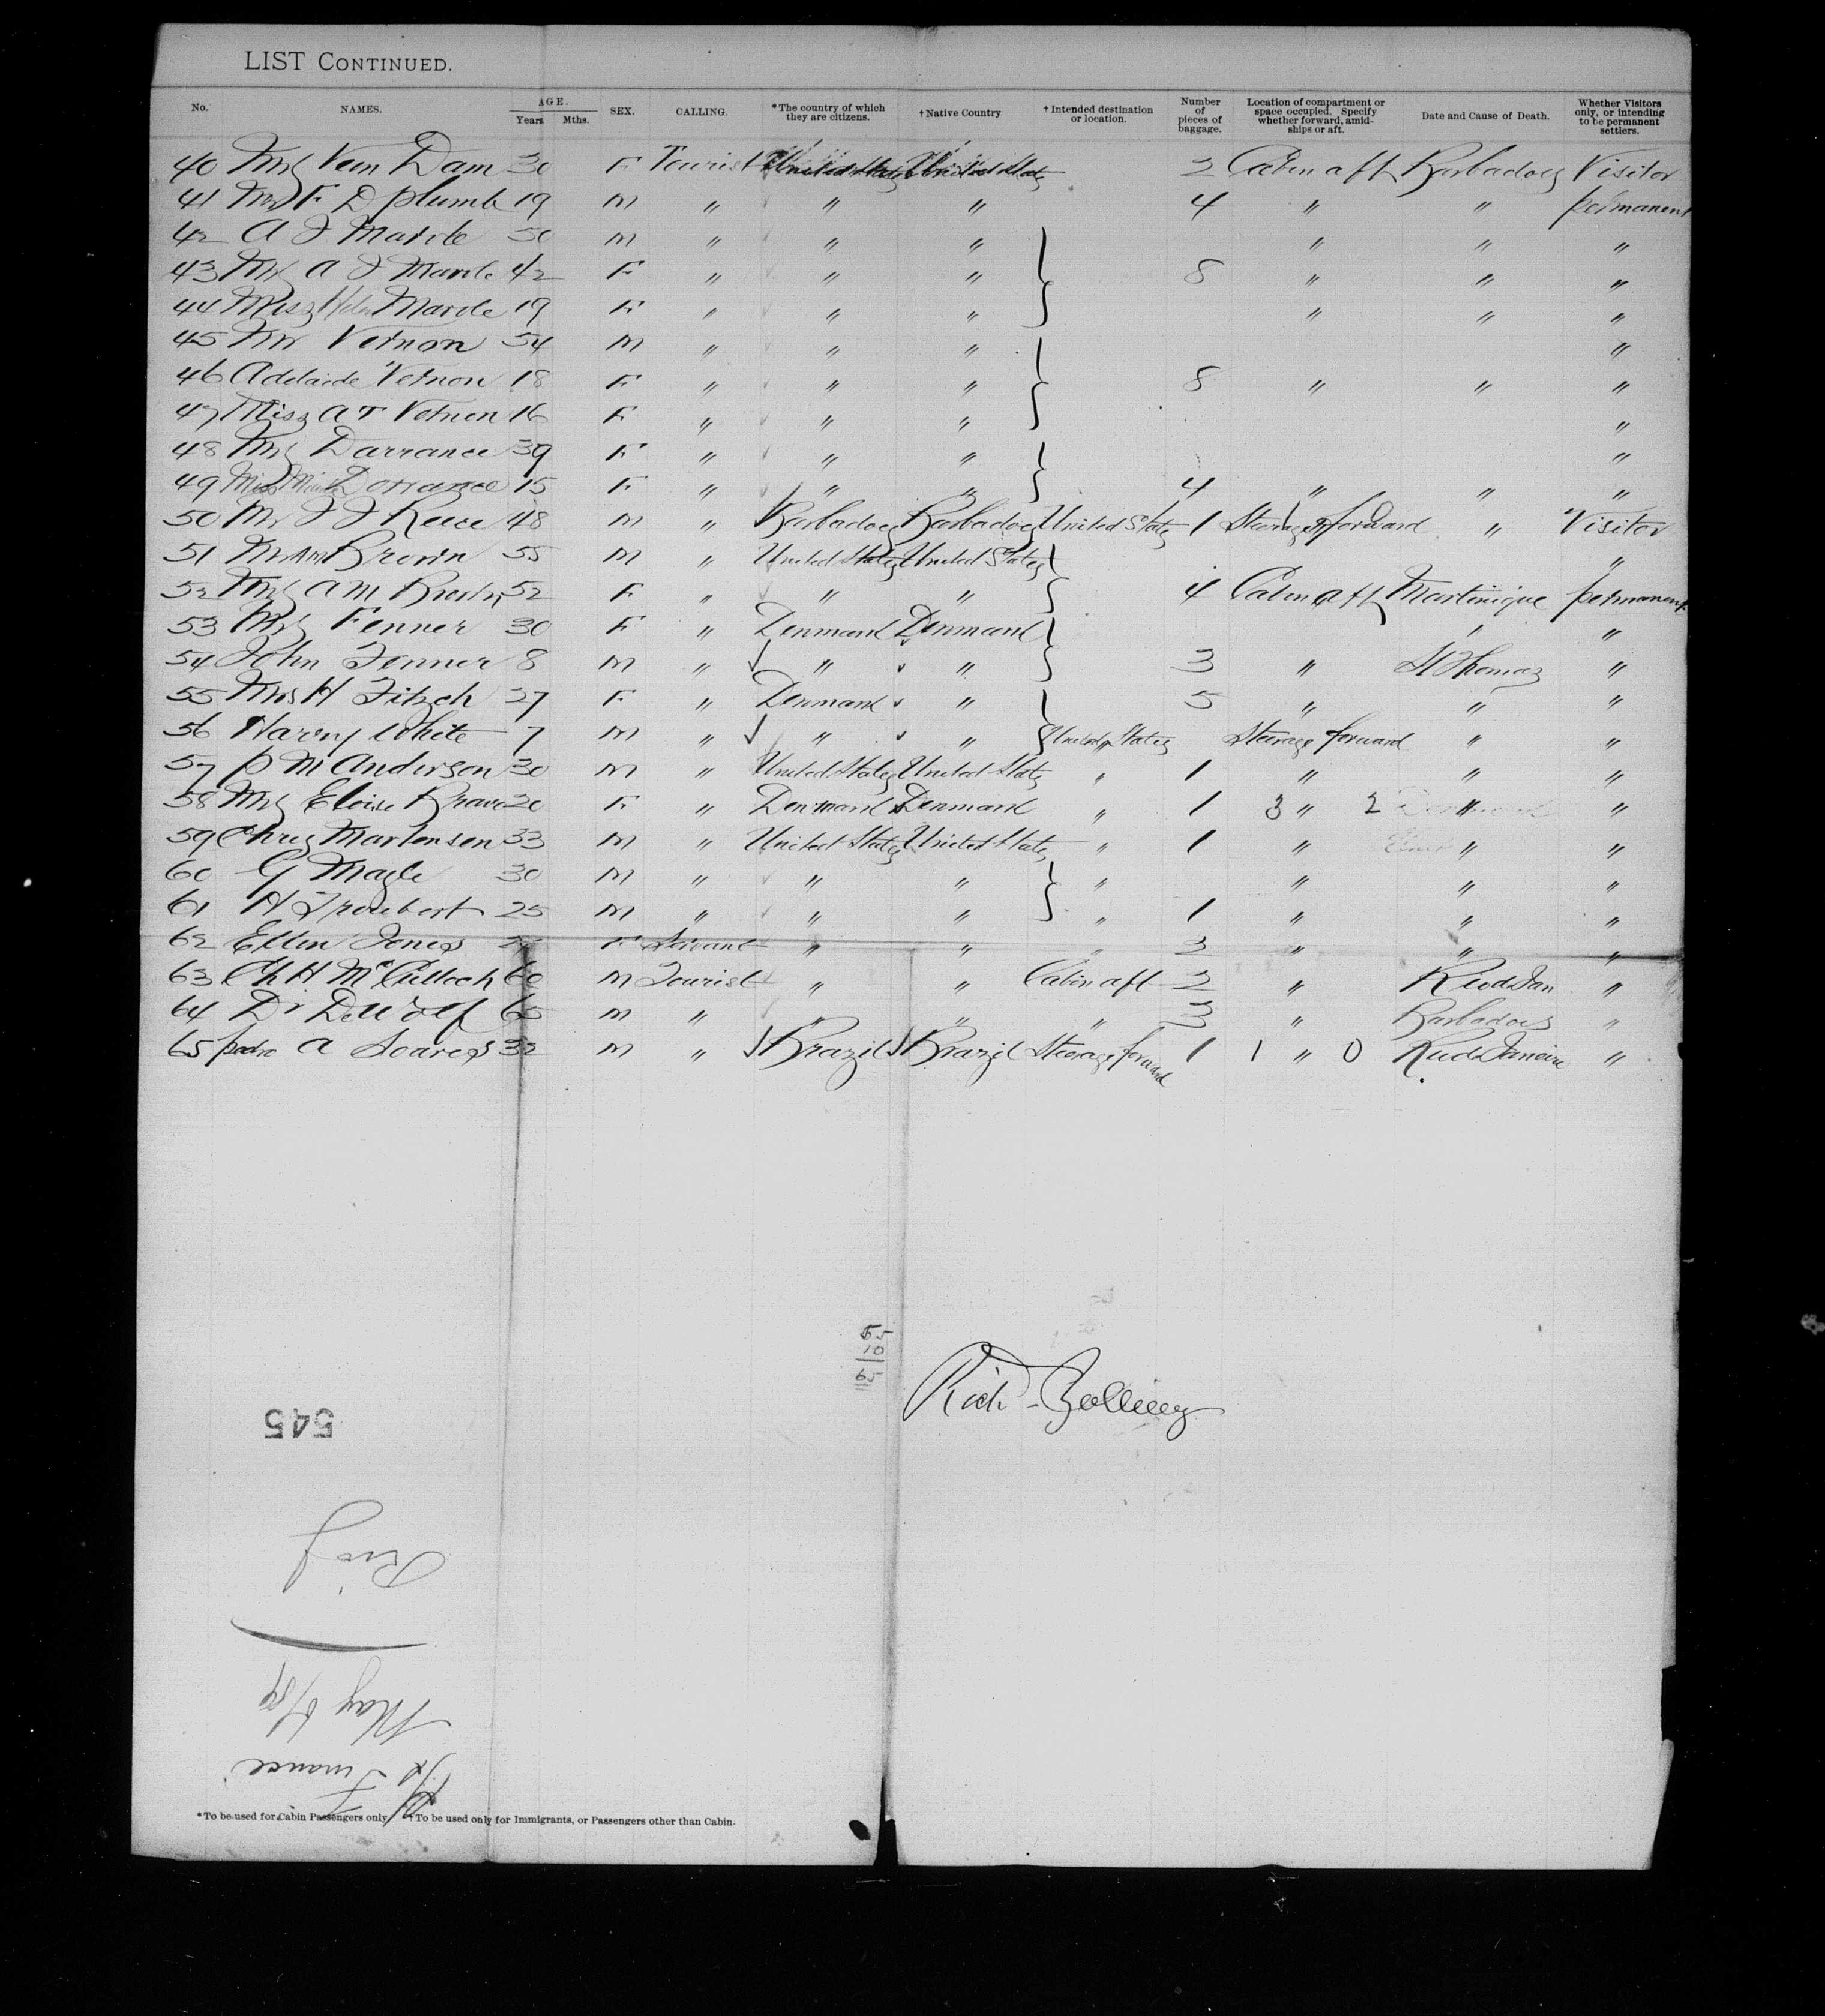 LIST CONTINUED.
No. NAMES. AGE. Years Mths. SEX. CALLING. *The country of which they are citizens. †Native Country †Intended destination or location. Number of pieces of baggage. Location of compartment or space occupied. Specify whether forward, amid-ships or aft. Date and Cause of Death. Whether Visitors only, or intending to be permanent settlers.
40 Mrs Dam 30 F Tourist United States United States 2 Cabin aft Barbadoes Visitor
41 F D Plumb 19 M " " " 4 " " permanent
42 A J Marvle 50 M " " " " " "
43 Mrs A J Marvle 42 F " " " 8 " " "
44 Miss Helen Marvle 19 F " " " " " "
45 Mr Vernon 54 M " " " "
46 Adelaide Vernon 18 F " " " 8 " " "
47 Miss A T Vernon 16 F " " " "
48 Mrs Darrance 39 F " " " "
49 Miss Dorrance 15 F " " " 4 " " "
50 Mr J J Reece 48 M " Barbadoes Barbadoes United States 1 Steerage forward " Visitor
51 Brown 55 M " United States United States "
52 Mrs A M Brown 52 F " " " 4 Cabin aft Martinique permanent
53 Mrs Fenner 30 F " Denmark Denmark "
54 John Fenner 8 M " " " 3 " St Thomas "
55 Mrs H Fitzch 27 F " Denmark " 5 " " "
56 Harry White 7 M " " " United States Steerage forward " "
57 P M Anderson 30 M " United States United States " 1 " " "
58 Mrs Eloise 20 F " Denmark Denmark " 1 3 " 2 " "
59 Chris Martensen 33 M " United States United States " 1 " " "
60 G Magle 30 M " " " " " " "
61 H Troubert 25 M " " " " 1 " " "
62 Ellen Jones F Servant " " " 2 " " "
63 Ch H McCulloch 60 M Tourist " " Cabin aft 2 " Rio d Jan "
64 Dr DeWolf 65 M " " " " 3 " Barbadoes "
65 Pedro A Soares 32 M " Brazil Brazil Steerage forward 1 1 " 0 Rio d Janeiro "
55
10
65
545
May 4/89
Finance
*To be used for Cabin Passengers only. †To be used only for Immigrants, or Passengers other than Cabin.